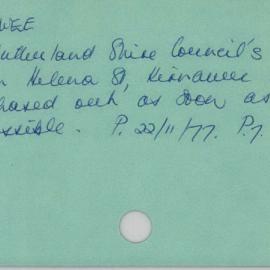 WEE
utherland Shire Council's
n Helena St, Kirrawee
hased out as soon as
ssible. P. 22/11/77. P.7.